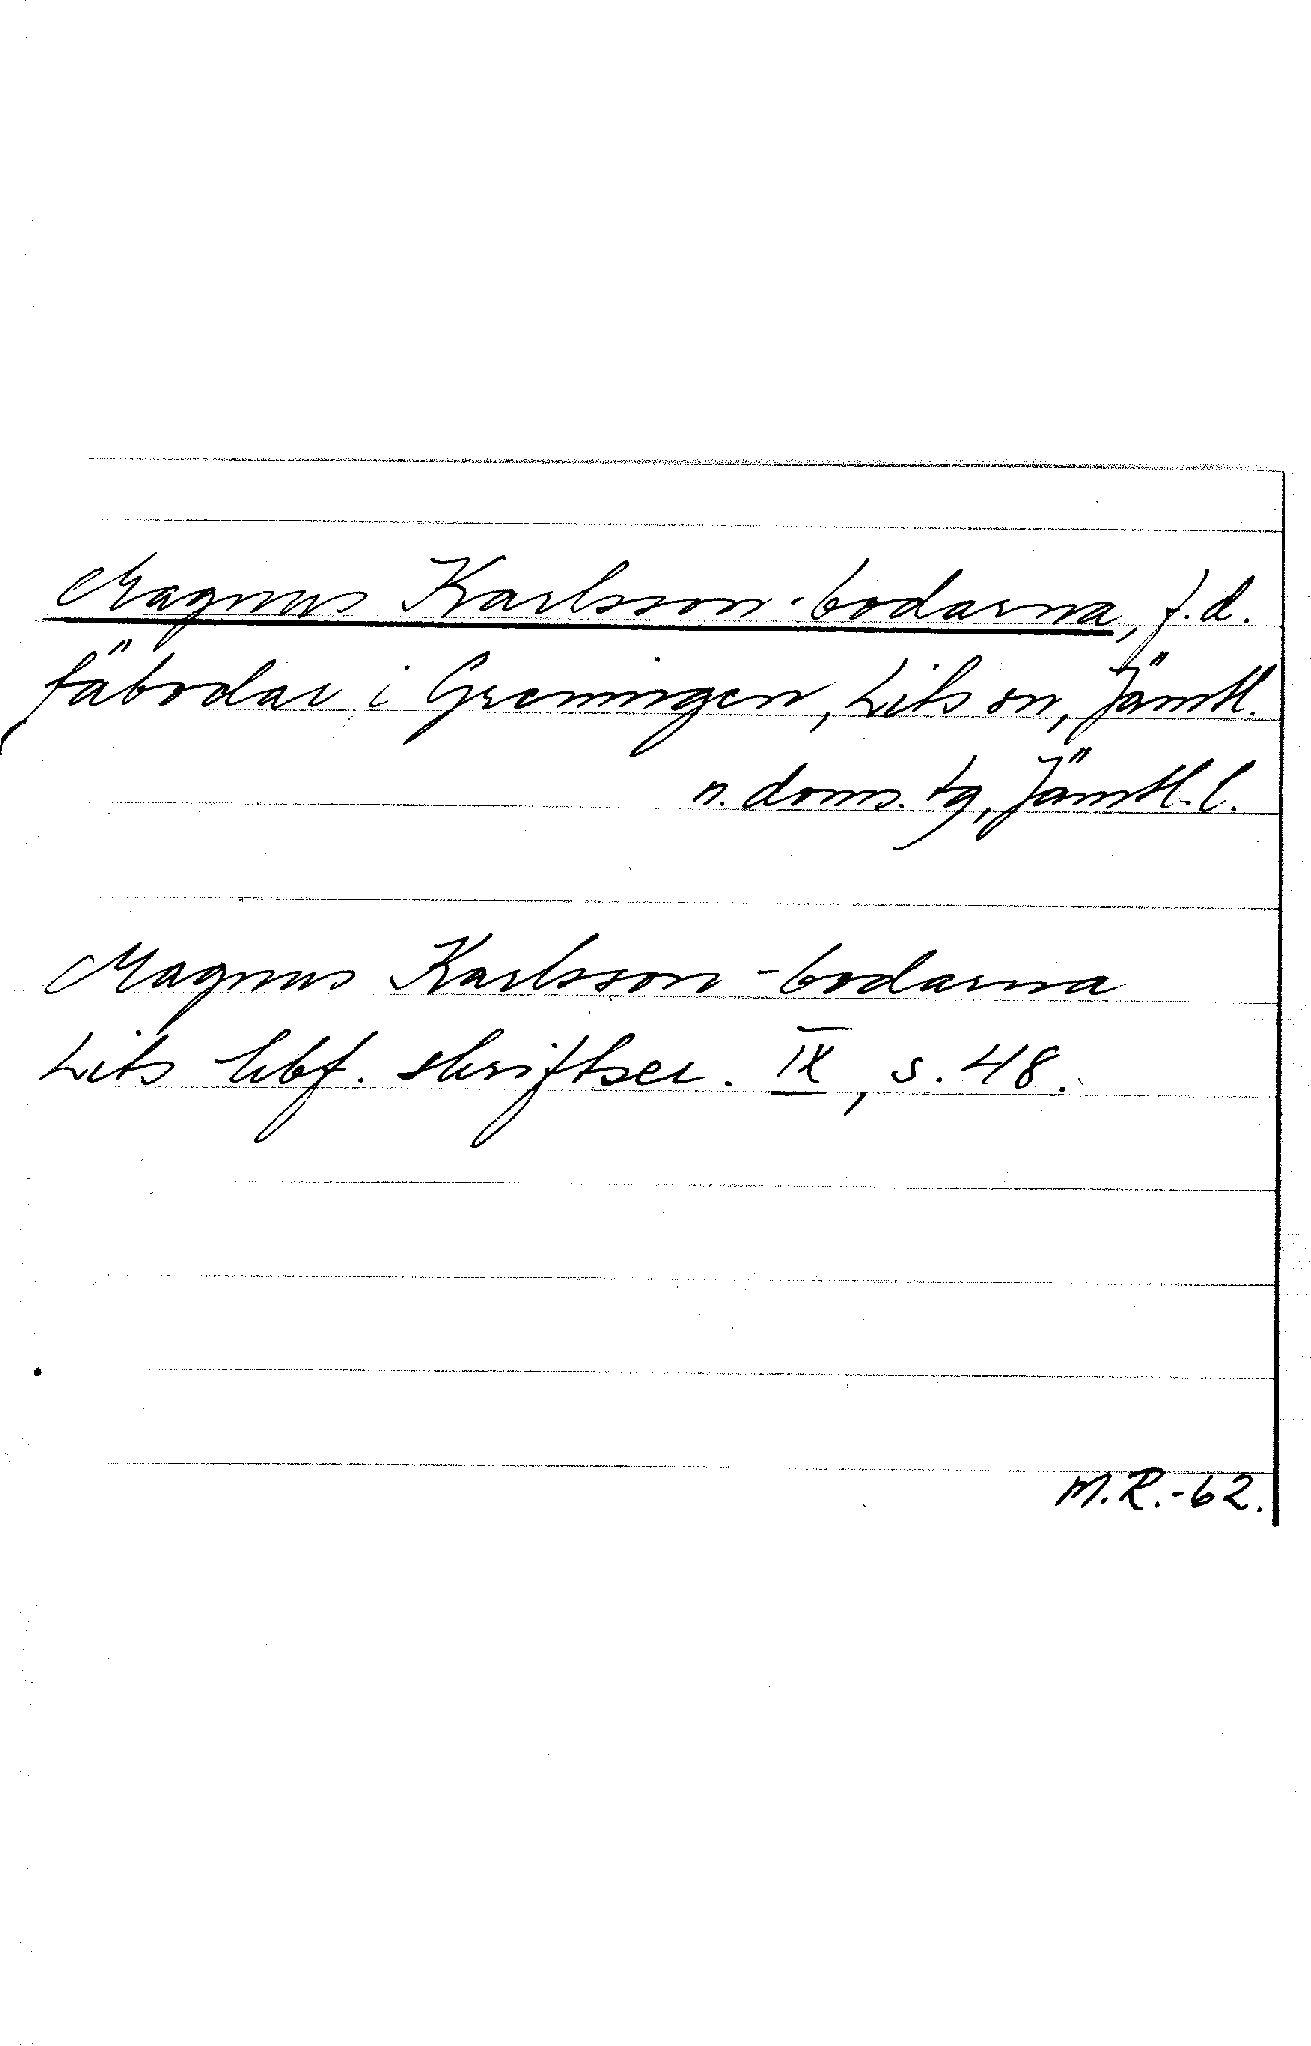 Magnus Karlsson-bodarna, f.d.
fäbodar i Greningen, Lits sn, Jämtl.
n. doms. tg, Jämtl. l.
Magnus Karlsson-bodarna
Lits hbf. skriftser. IX, s. 48.
M.R.-62.